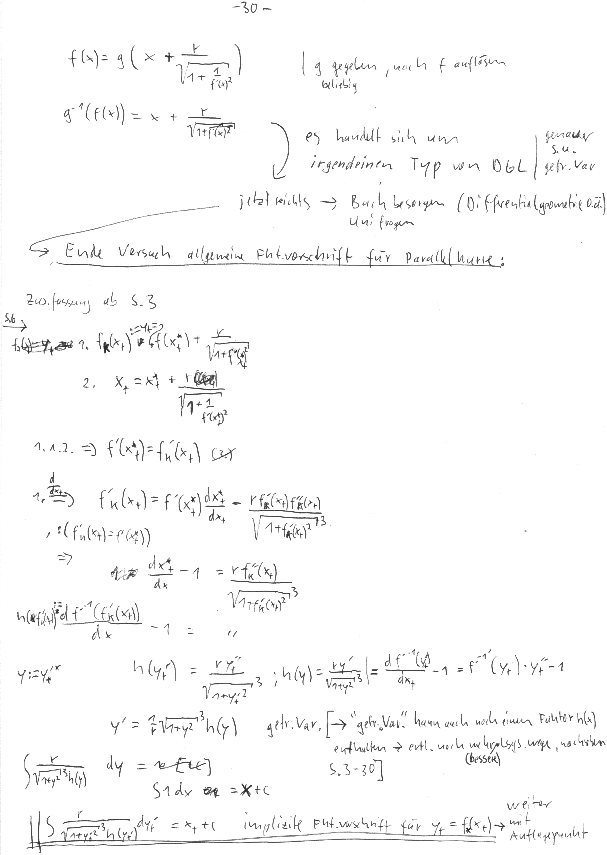 -30-
f(x) = g ( x + r / √(1 + 1/f'(x)²) ) | g gegeben, nach f auflösen
beliebig
g⁻¹(f(x)) = x + r / √(1+f'(x)²)
es handelt sich um
irgendeinen Typ von DGL | genauer s.u. getr. Var
jetzt reichts → Buch besorgen (Differentialgeometrie o.ä.)
Uni fragen
→ Ende Versuch allgemeine Fkt.vorschrift für Parallelkurve:
Zus.fassung ab S.3
S.6
1. f_k(x_t) := y_t = f(x_t*) + r / √(1+f'(x_t*)²)
2. x_t = x_t* + r / √(1 + 1/f'(x_t*)²)
1. 1. 2. => f'(x_t*) = f_k'(x_t) (3.)
1. d/dx_t => f_k'(x_t) = f'(x_t*) dx_t*/dx_t - r f_k'(x_t) f_k''(x_t) / √(1+f_k'(x_t)²)³
, :(f_k'(x_t) = f'(x_t*))
=>
dx_t*/dx - 1 = r f_k''(x_t) / √(1+f_k'(x_t)²)³
d f'⁻¹(f_k'(x_t)) / dx - 1 = "
y := y_t' h(y_t') = r y_t'' / √(1+y_t'²)³ ; h(y) = r y' / √(1+y²)³ | = d f'⁻¹(y_t') / dx_t - 1 = f'⁻¹'(y_t') · y_t'' - 1
y' = 1/r √(1+y²)³ h(y) getr. Var. [→ "getr. Var." kann auch noch einen Faktor h(x)
enthalten → evtl. noch
(besser)
S. 3-30]
∫ r / (√(1+y²)³ h(y)) dy =
∫ 1 dx = x + c
∫ r / (√(1+y_t'²)³ h(y_t')) dy_t' = x_t + c implizite Fkt.vorschrift für y_t = f_k(x_t) → weiter mit